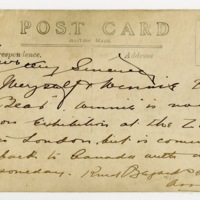 POST CARD
BRITISH MADE
Correspondence. Address
Yours very Sincerely
Myself & Winnie the
Bear. Winnie is now
on Exhibition at the Z
in London. but is coming
back to Canada with
someday. Kind Regards